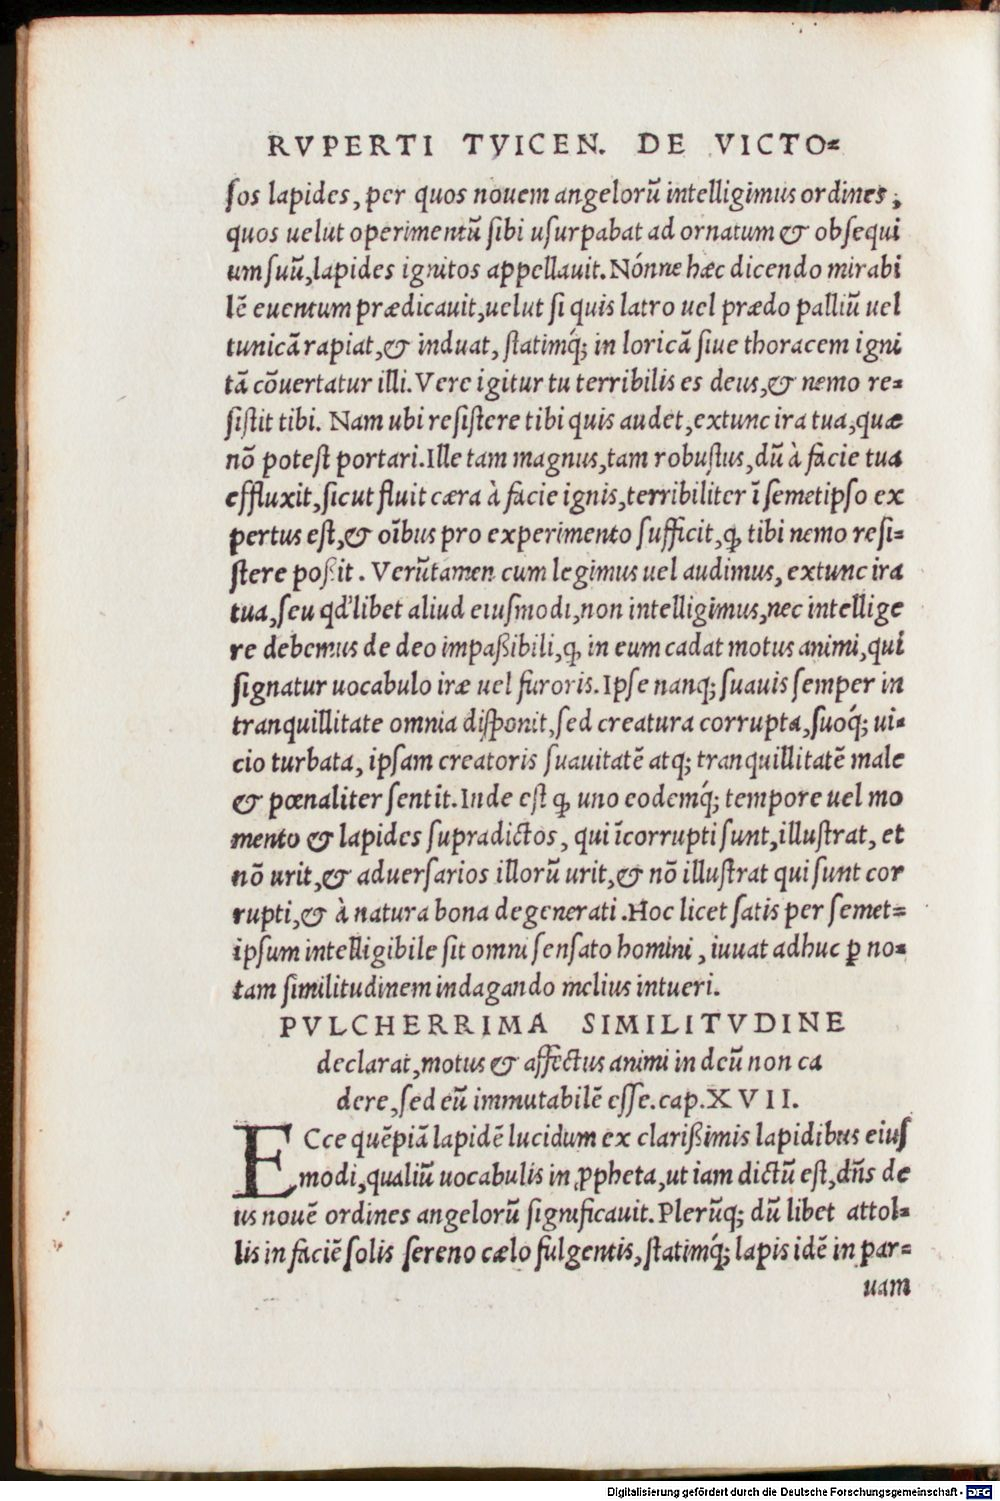 RVPERTI TVICEN. DE VICTO-
ſos lapides, per quos nouem angelorũ intelligimus ordines,
quos uelut operimentũ ſibi uſurpabat ad ornatum & obſequi
um ſuũ, lapides ignitos appellauit. Nónne hæc dicendo mirabi
lẽ euentum prædicauit, uelut ſi quis latro uel prædo palliũ uel
tunicã rapiat, & induat, ſtatimq́; in loricã ſiue thoracem igni
tã cõuertatur illi. Vere igitur tu terribilis es deus, & nemo re-
ſiſtit tibi. Nam ubi reſiſtere tibi quis audet, extunc ira tua, quæ
nõ poteſt portari. Ille tam magnus, tam robuſtus, dũ à facie tua
effluxit, ſicut fluit cæra à facie ignis, terribiliter ĩ ſemetipſo ex
pertus eſt, & oĩbus pro experimento ſufficit, ꝙ tibi nemo reſi-
ſtere poßit. Verũtamen cum legimus uel audimus, extunc ira
tua, ſeu qd'libet aliud eiuſmodi, non intelligimus, nec intellige
re debemus de deo impaßibili, ꝙ in eum cadat motus animi, qui
ſignatur uocabulo iræ uel furoris. Ipſe nanq; ſuauis ſemper in
tranquillitate omnia diſponit, ſed creatura corrupta, ſuoq́; ui-
cio turbata, ipſam creatoris ſuauitatẽ atq; tranquillitatẽ male
& pœnaliter ſentit. Inde eſt ꝙ uno eodemq́; tempore uel mo
mento & lapides ſupradictos, qui ĩcorrupti ſunt, illuſtrat, et
nõ urit, & aduerſarios illorũ urit, & nõ illuſtrat qui ſunt cor
rupti, & à natura bona degenerati. Hoc licet ſatis per ſemet-
ipſum intelligibile ſit omni ſenſato homini, iuuat adhuc ꝑ no-
tam ſimilitudinem indagando melius intueri.
PVLCHERRIMA SIMILITVDINE
declarat, motus & affectus animi in deũ non ca
dere, ſed eũ immutabilẽ eſſe. cap. XVII.
ECce quẽpiã lapidẽ lucidum ex clarißimis lapidibus eiuſ
modi, qualiũ uocabulis in ꝓpheta, ut iam dictũ eſt, dñs de
us nouẽ ordines angelorũ ſignificauit. Plerũq; dũ libet attol-
lis in faciẽ ſolis ſereno cælo fulgentis, ſtatimq́; lapis idẽ in par-
uam
Digitalisierung gefördert durch die Deutsche Forschungsgemeinschaft - DFG